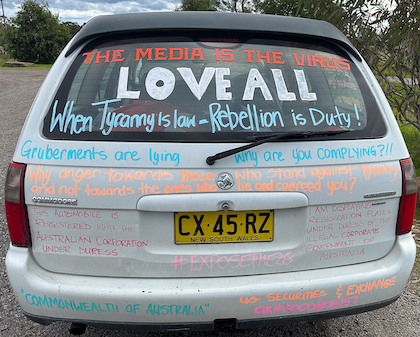 THE MEDIA IS THE VIRUS
LOVE ALL
When Tyranny Is law = Rebellion is Duty!
Gruberments are lying why are you COMPLYING?!!
Why anger towards those who stand against tyranny
and not towards the ones who lie and coerced you?
COMMODORE
THIS AUTOMOBILE IS
REGISTERED WITH THE
AUSTRALIAN CORPORATION
UNDER DURESS
CX·45·RZ
NEW SOUTH WALES
I AM DISPLAYING
REGISTRATION PLATES
UNDER DURESS OF THE
ILLEGAL CORPORATE
GOVERNMENT OF
AUSTRALIA
"COMMONWEALTH OF AUSTRALIA"
US SECURITIES & EXCHANGE